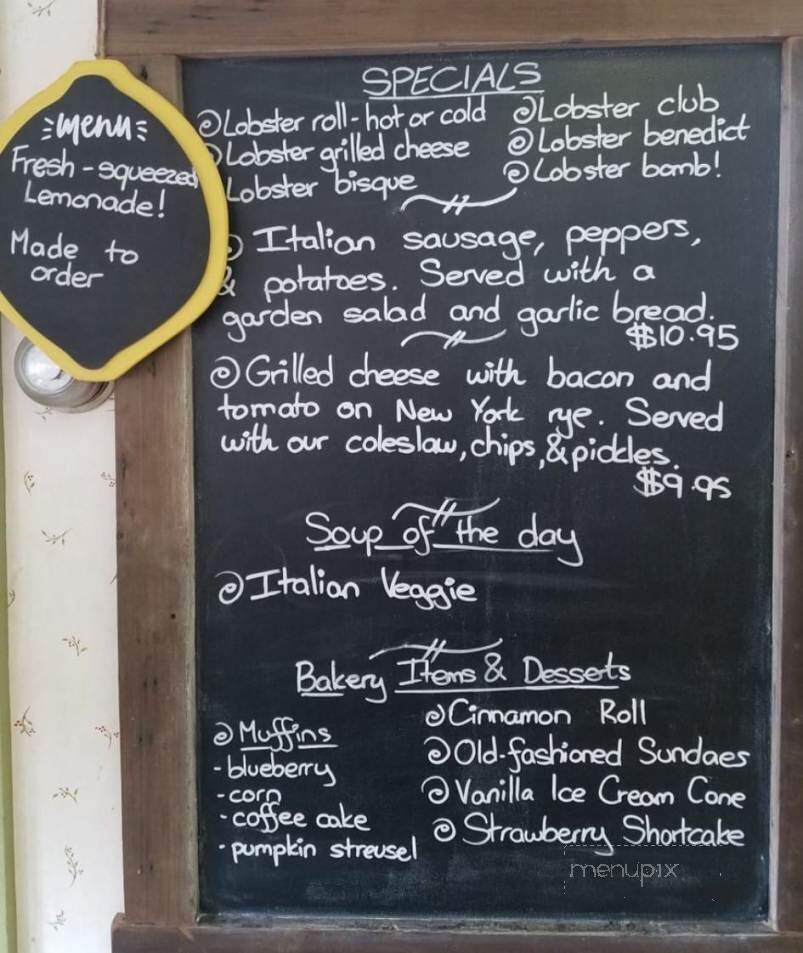 menu
Fresh-squeezed
Lemonade!
Made to
order
SPECIALS
Lobster roll-hot or cold
Lobster grilled cheese
Lobster bisque
Lobster club
Lobster benedict
Lobster bomb!
Italian sausage, peppers,
& potatoes. Served with a
garden salad and garlic bread.
$10.95
Grilled cheese with bacon and
tomato on New York rye. Served
with our coleslaw, chips, & pickles.
$9.95
Soup of the day
Italian Veggie
Bakery Items & Desserts
Muffins
-blueberry
-corn
-coffee cake
-pumpkin streusel
Cinnamon Roll
Old-fashioned Sundaes
Vanilla Ice Cream Cone
Strawberry Shortcake
menupix